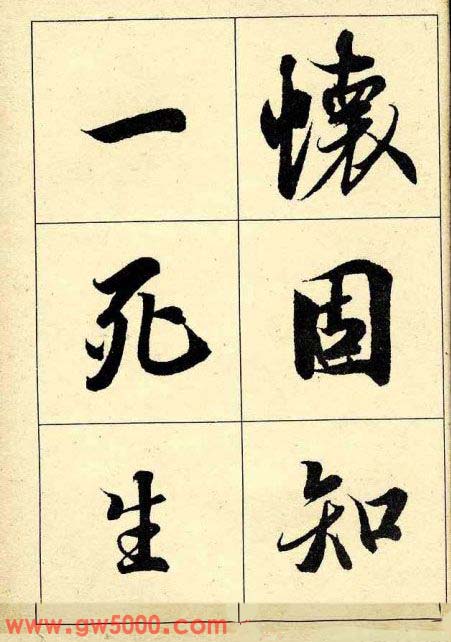 懷固知
一死生
www.gw5000.com